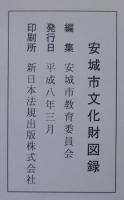 安城市文化財図録
編集 安城市教育委員会
発行日 平成八年三月
印刷所 新日本法規出版株式会社